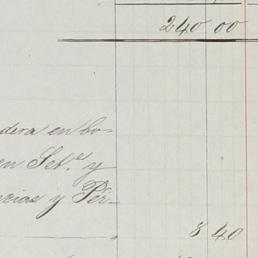 240 00
dera en bo-
en Set.e y
ncias y Per-
8 40